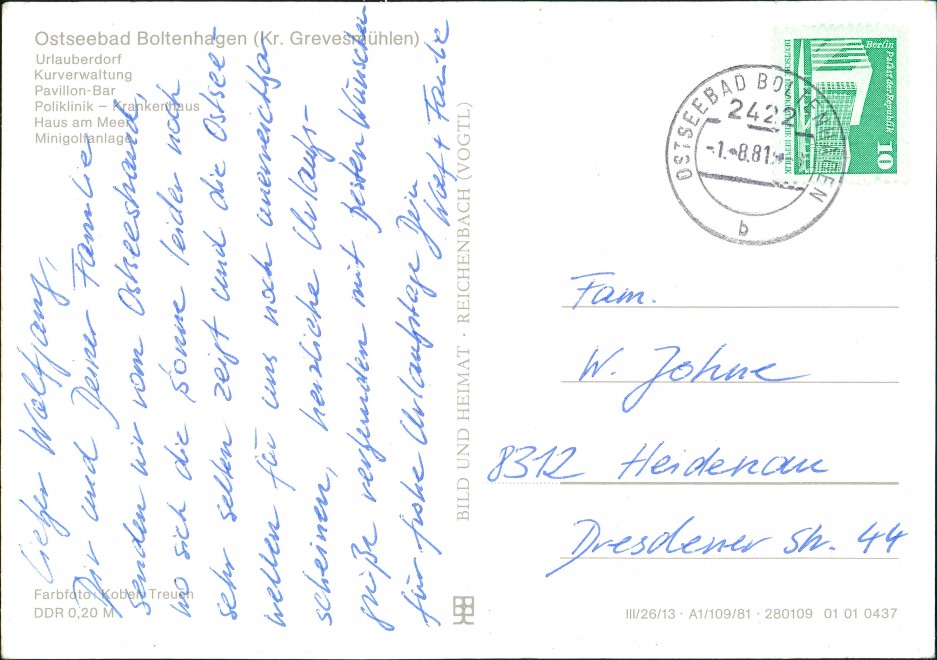 Ostseebad Boltenhagen (Kr. Grevesmühlen)
Urlauberdorf
Kurverwaltung
Pavillon-Bar
Poliklinik – Krankenhaus
Haus am Meer
Minigolfanlage
Lieber Wolfgang,
Dir und Deiner Familie
senden wir vom Ostseestrand,
wo sich die Sonne leider noch
sehr selten zeigt und die Ostsee-
wellen für uns noch unerreichbar
scheinen, herzliche Urlaubs-
grüße verbunden mit besten Wünschen
für frohe Urlaubstage Dein
Wolf Familie
Farbfoto: Kober, Treuen
DDR 0,20 M
BILD UND HEIMAT · REICHENBACH (VOGTL)
OSTSEEBAD BOLTENHAGEN
2422
-1.-8.81
b
Berlin
Palast der Republik
10
DEUTSCHE DEMOKRATISCHE REPUBLIK
Fam.
W. Johne
8312 Heidenau
Dresdener Str. 44
III/26/13 · A1/109/81 · 280109 01 01 0437